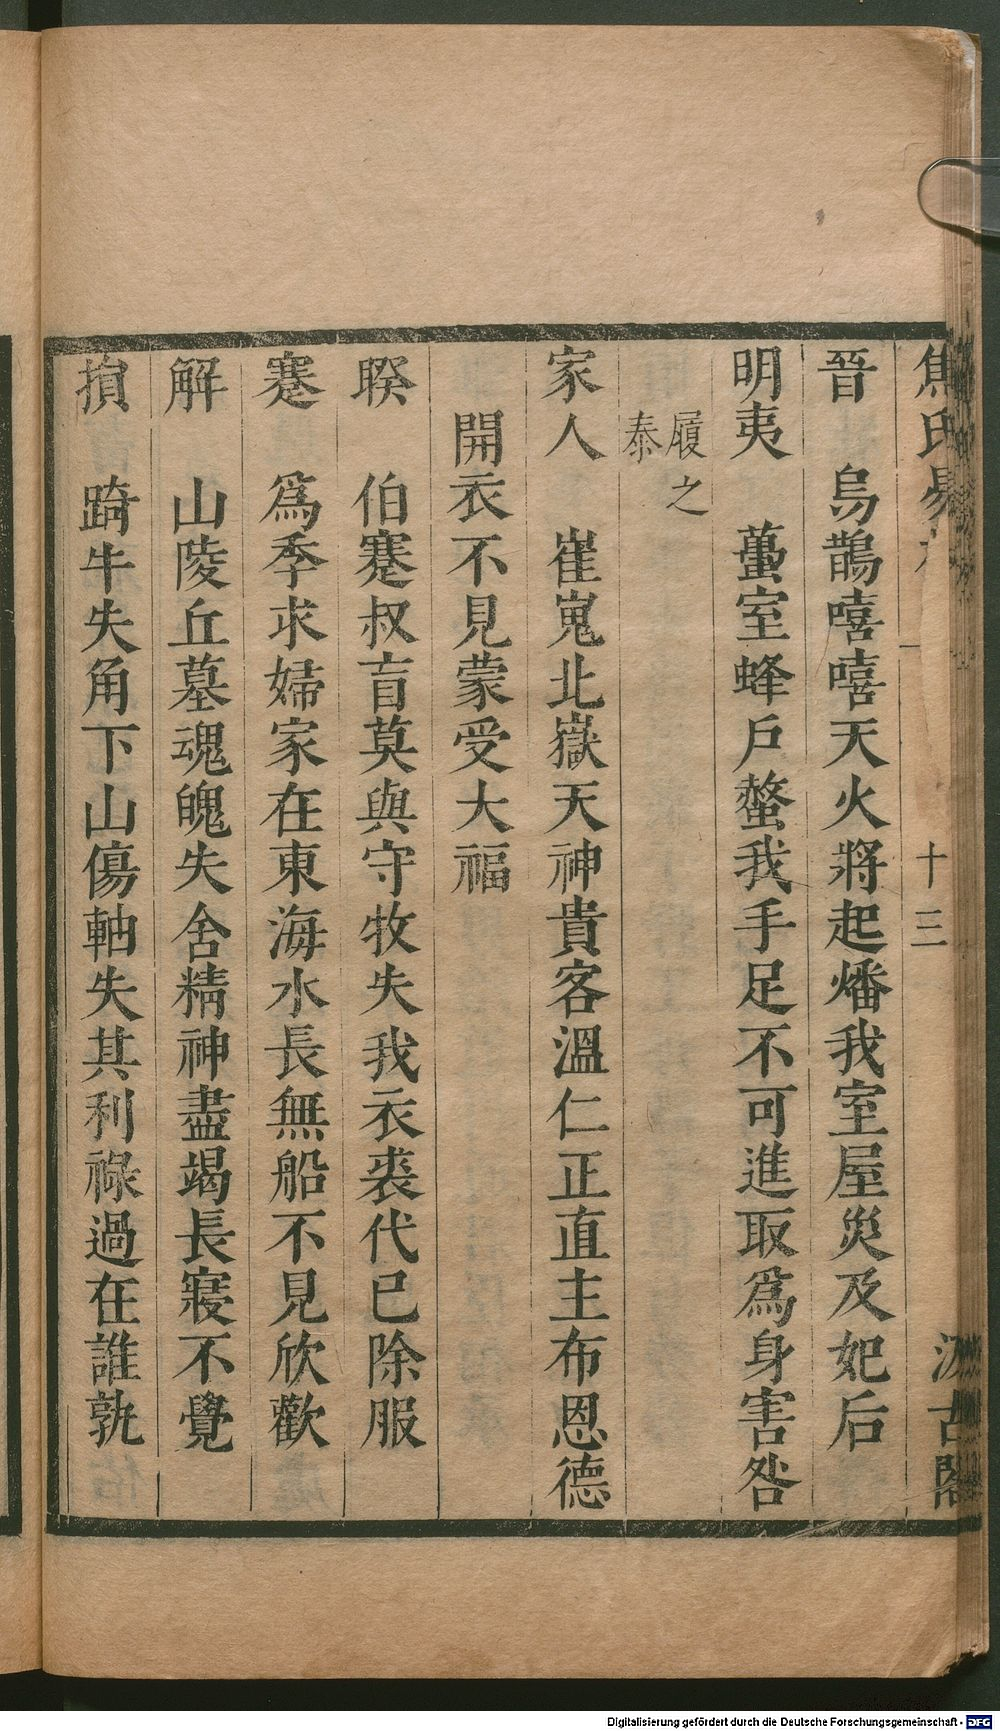 焦氏易
十三
汲古閣
晉　烏鵲嘻嘻天火將起燔我室屋災及妃后
明夷　蠆室蜂戶螫我手足不可進取爲身害咎
履之
泰
家人　崔嵬北嶽天神貴客溫仁正直主布恩德
開衣不見蒙受大福
睽　伯蹇叔盲莫與守牧失我衣裘代已除服
蹇　爲季求婦家在東海水長無船不見欣歡
解　山陵丘墓魂魄失舍精神盡竭長寢不覺
損　踦牛失角下山傷軸失其利祿過在誰孰
Digitalisierung gefördert durch die Deutsche Forschungsgemeinschaft - DFG